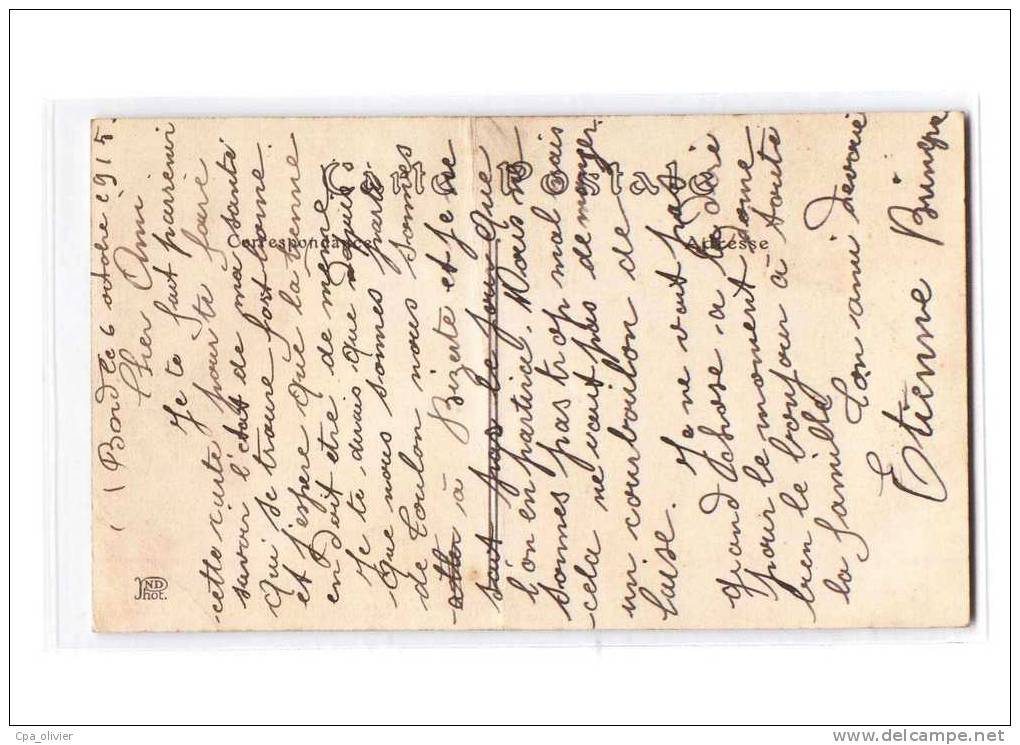 Bord le 6 octobre 1915.
Cher Ami
Je te fait parvenir
cette carte pour te faire
savoir l'état de ma santé
Qui se trouve fort bonne.
et j'espere Que la tienne
en Doit être de même
Je te dirais que depuis
Que nous sommes parti
de Toulon nous sommes
à Bizerte et je ne
sait pas le jour Que
l'on en partira. Mais ne
sommes pas trop mal mais
cela ne vaut pas de manger
un courbouillon de
Je ne voit pas
grand chose a te dire
pour le moment Donne
bien le bonjour à toute
la famille
Ton ami devoué
Etienne
Carte Postale
Correspondance
Adresse
ND
Phot.
Cpa_olivier
www.delcampe.net